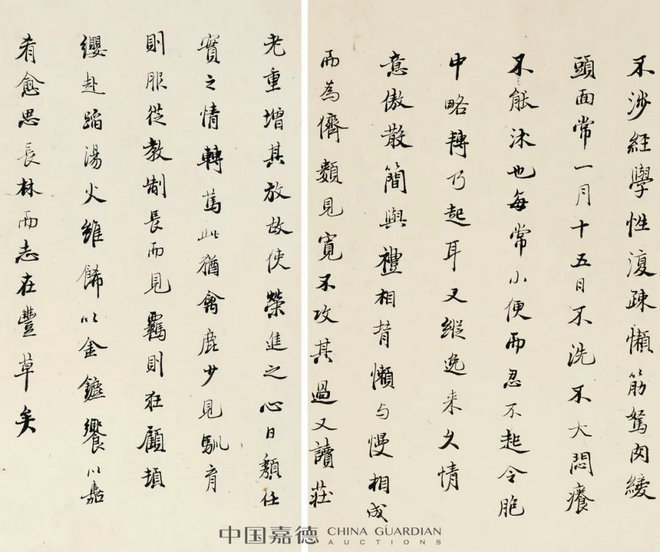 不涉經學性復疎懶筋駑肉緩
頭面常一月十五日不洗不大悶癢
不能沐也每常小便而忍不起令胞
中略轉乃起耳又縱逸来久情
意傲散簡與禮相背懶与慢相成
而為儕類見寬不攻其過又讀莊
老重增其放故使榮進之心日頹任
實之情轉篤此猶禽鹿少見馴育
則服從教制長而見羈則狂顧頓
纓赴蹈湯火雖飾以金鑣饗以嘉
肴愈思長林而志在豐草矣
中国嘉德 CHINA GUARDIAN
AUCTIONS